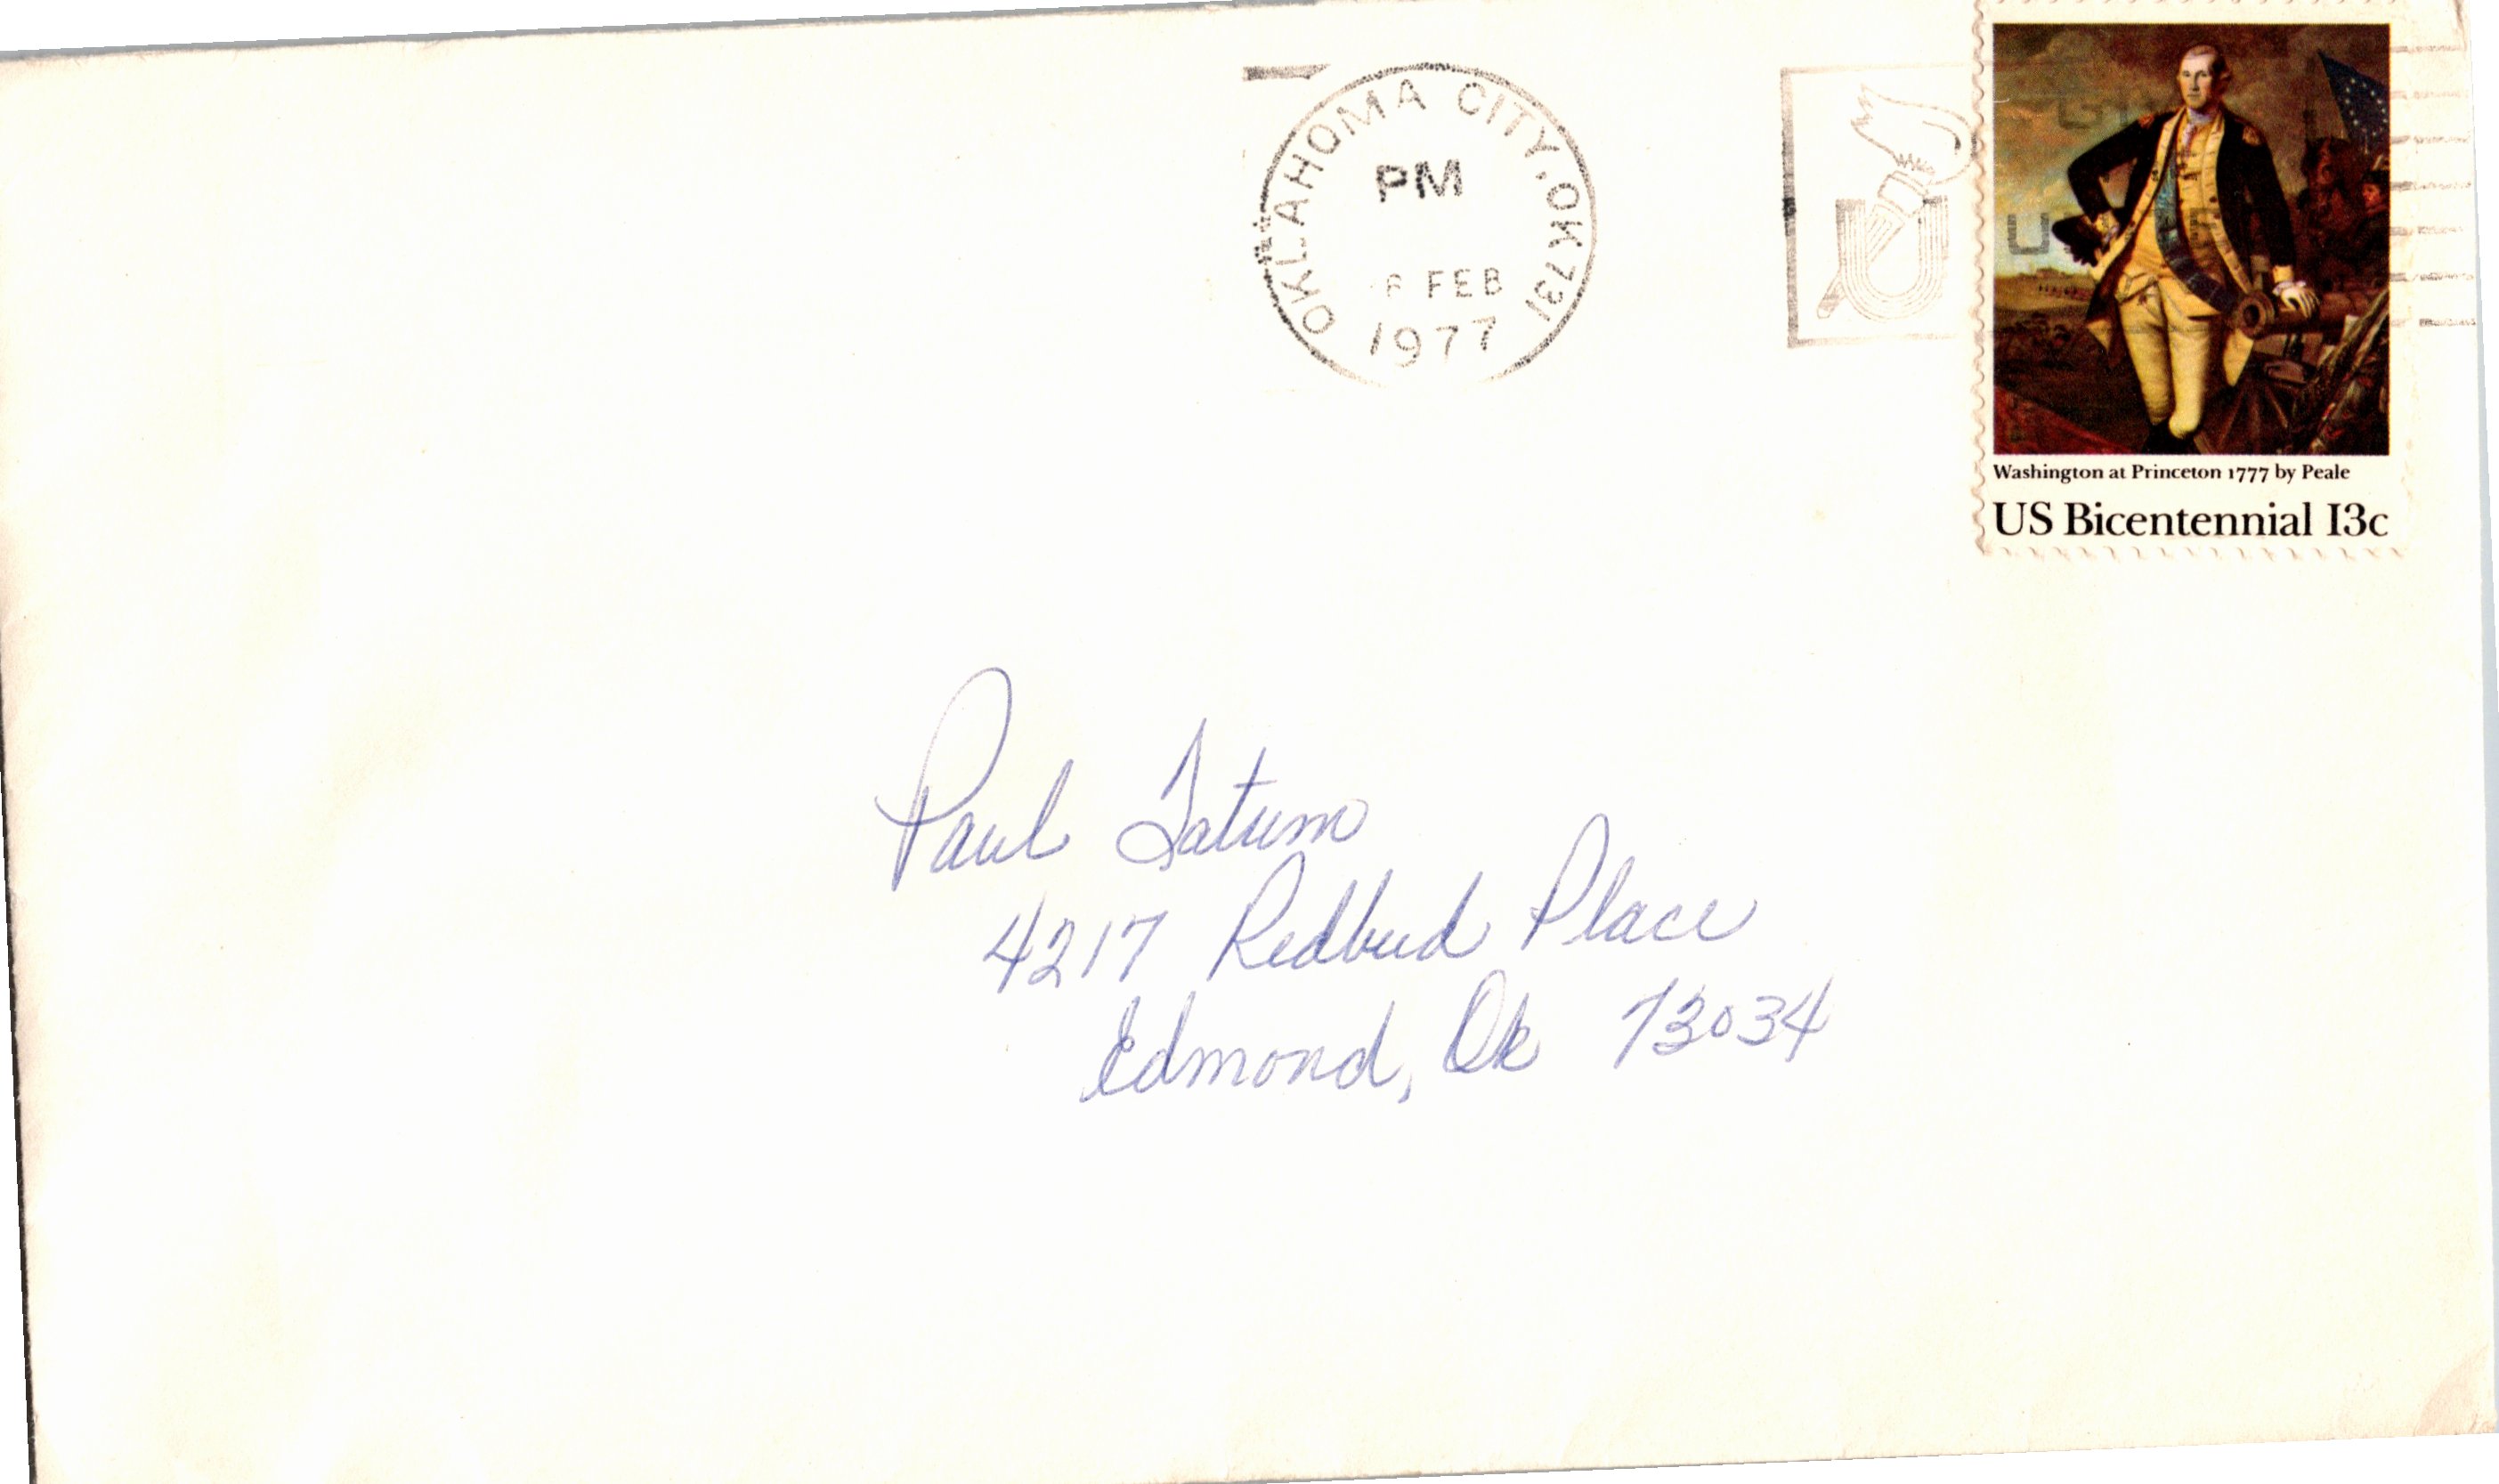 OKLAHOMA CITY, OK 731
PM
FEB
1977
Washington at Princeton 1777 by Peale
US Bicentennial 13c
Paul Tatum
4217 Redbud Place
Edmond, Ok 73034